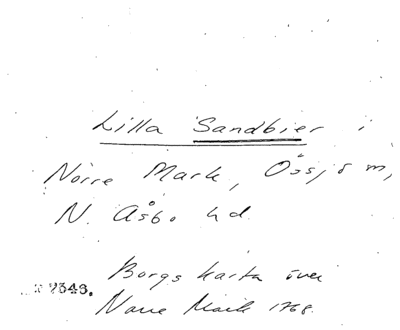 Lilla Sandbier i
Nörre Mark, Össjö m,
N. Åsbo hd.
Borgs karta över
7343.
Norre Mark 1768.